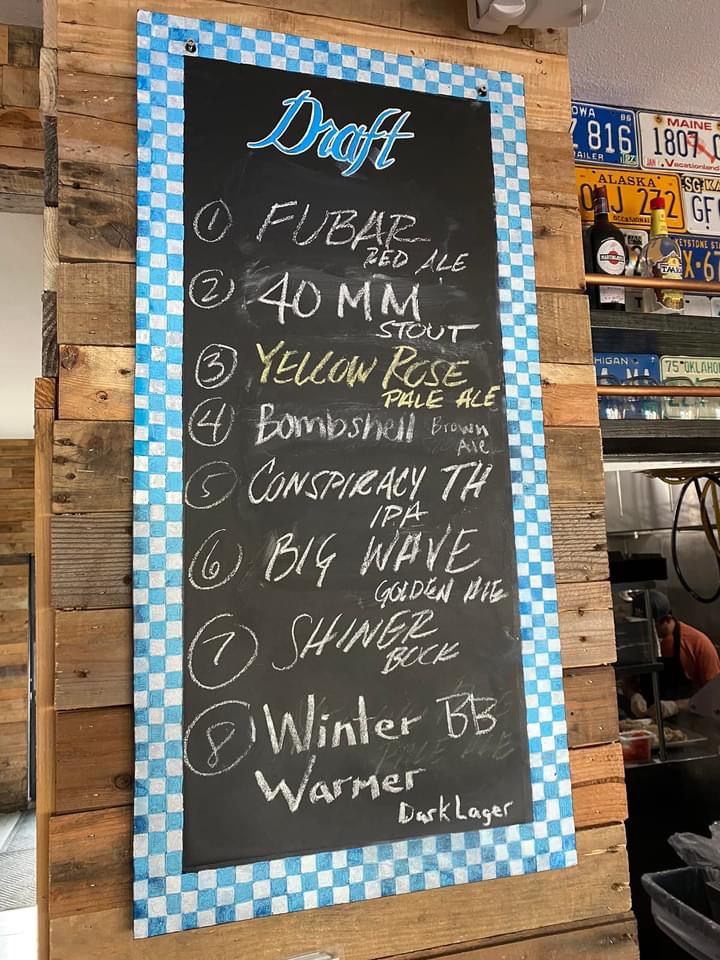 Draft
1 FUBAR
RED ALE
2 40 MM
STOUT
3 YELLOW ROSE
PALE ALE
4 Bombshell Brown
Ale
5 CONSPIRACY TH
IPA
6 BIG WAVE
GOLDEN ALE
7 SHINER
BOCK
8 Winter BB
Warmer
Dark Lager
816
MAINE
1807
Vacationland
ALASKA
272
KEYSTONE
75 OKLAHO